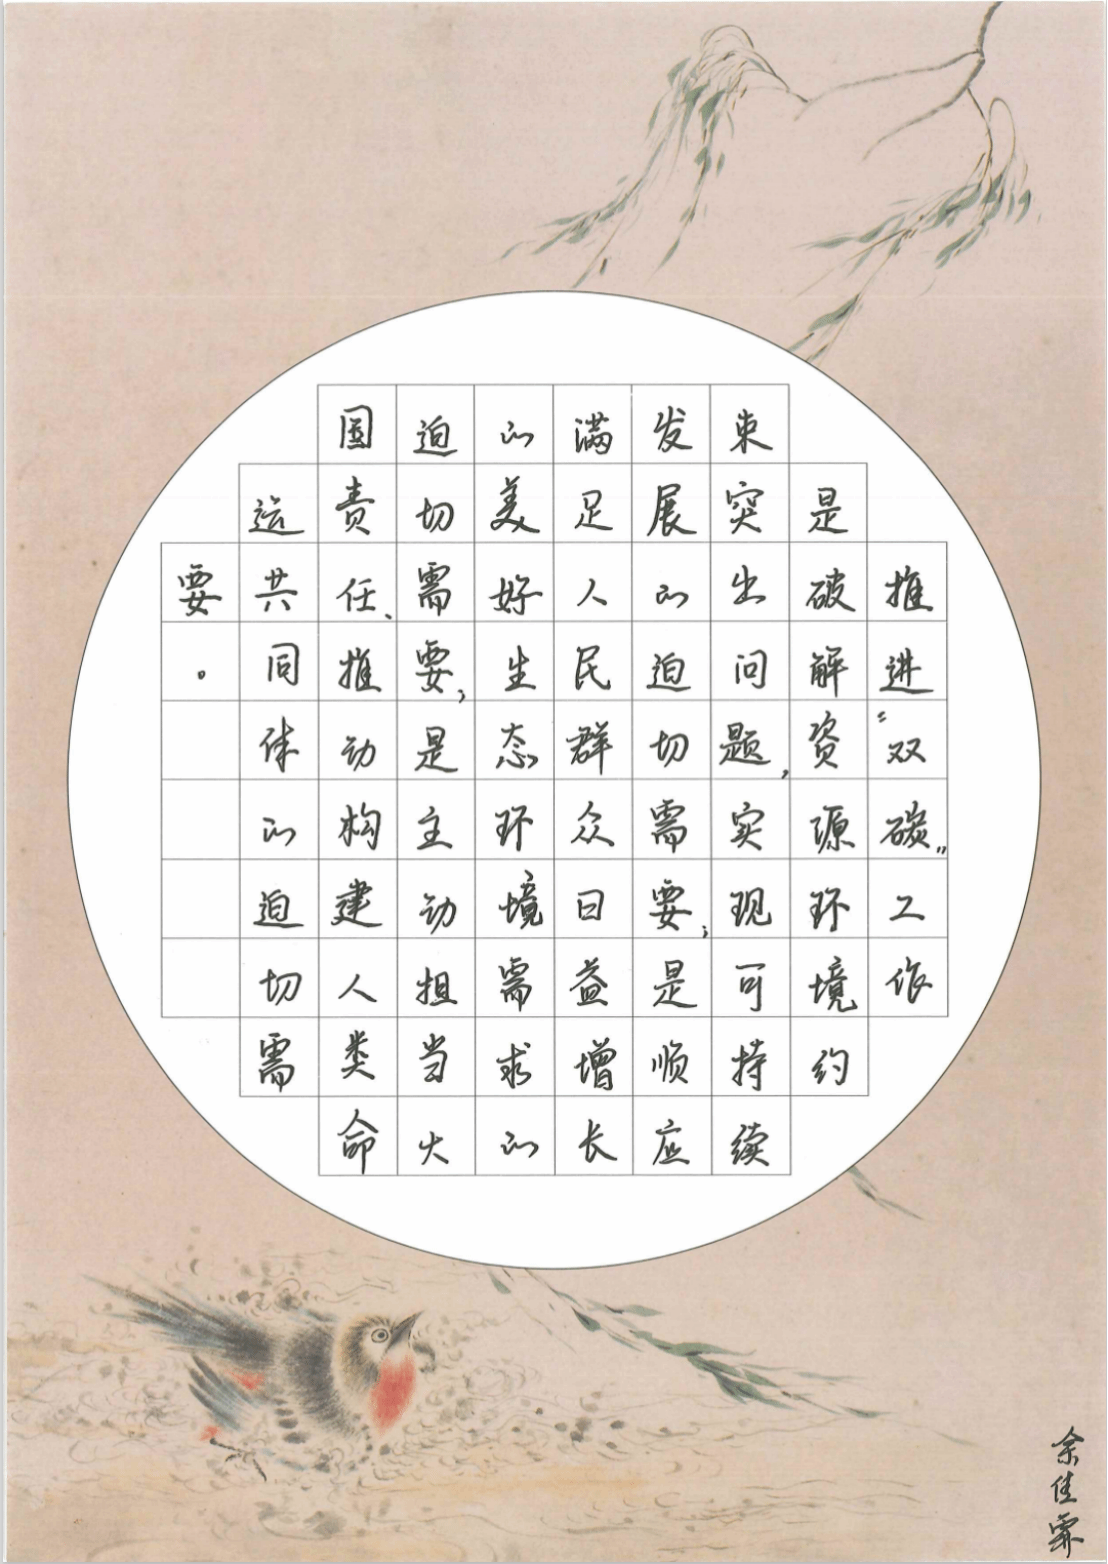 推进“双碳”工作
是破解资源环境约
束突出问题，实现可持续
发展的迫切需要；是顺应
满足人民群众日益增长
的美好生态环境需求的
迫切需要，是主动担当大
国责任、推动构建人类命
运共同体的迫切需
要。
余佳